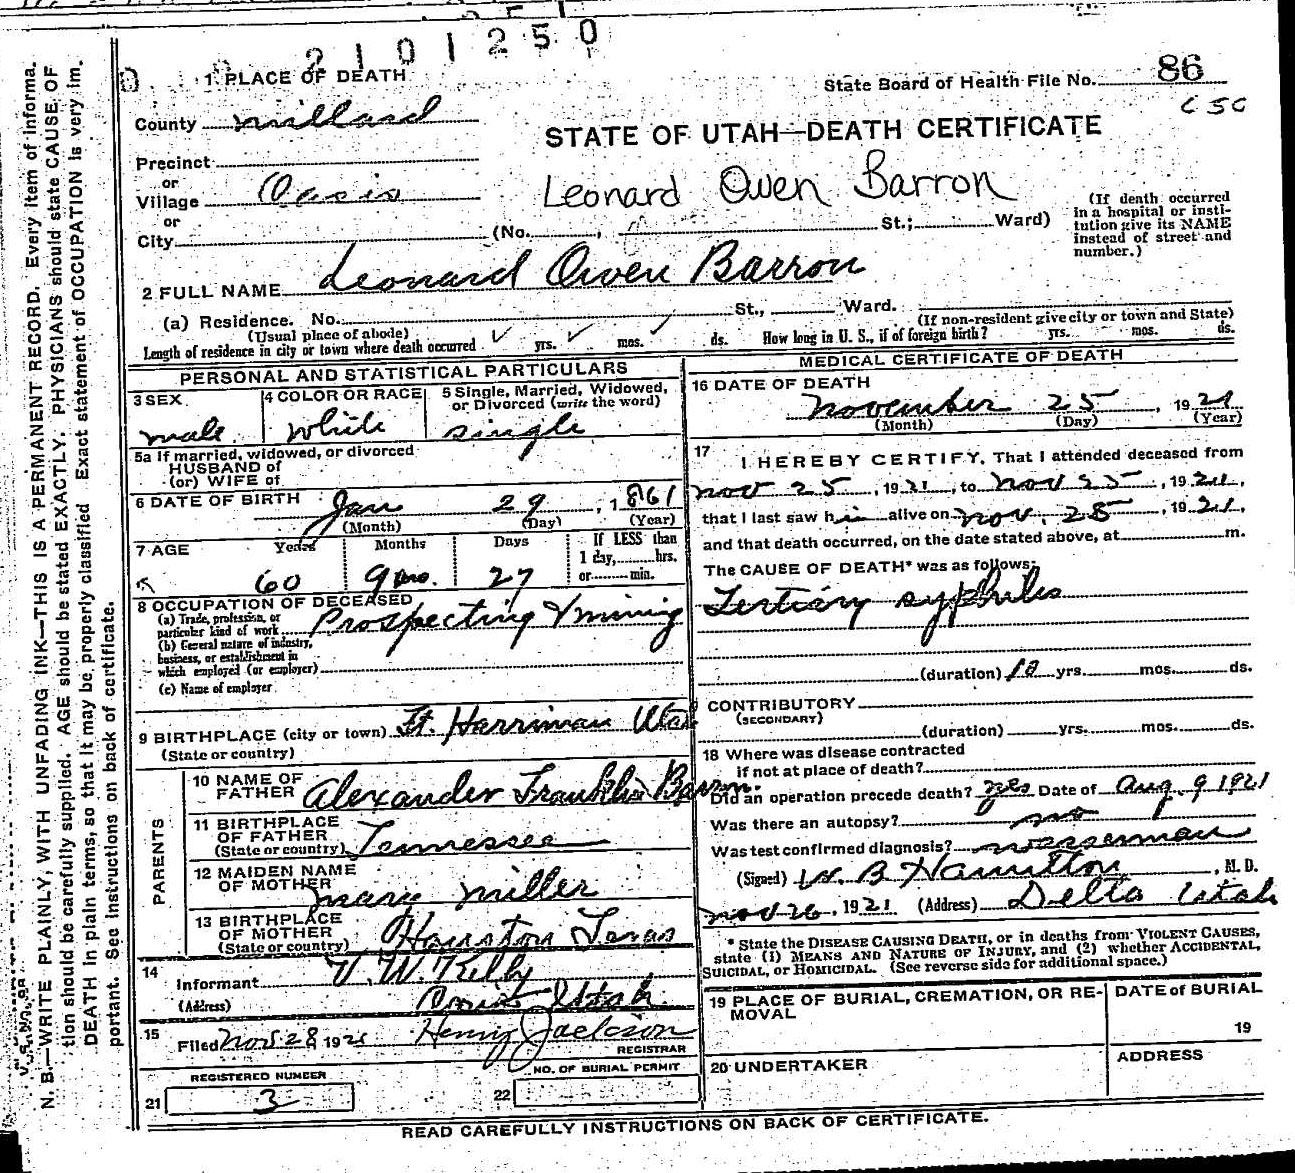 2101250
1 PLACE OF DEATH
State Board of Health File No. 86
County Millard
STATE OF UTAH—DEATH CERTIFICATE
Precinct
or
Village Oasis
Leonard Owen Barron
or
City (No. , St.; Ward)
(If death occurred in a hospital or insti-
tution give its NAME
instead of street and
number.)
2 FULL NAME Leonard Owen Barron
(a) Residence. No. St., Ward.
(Usual place of abode) (If non-resident give city or town and State)
Length of residence in city or town where death occurred ✓ yrs. ✓ mos. ✓ ds. How long in U. S., if of foreign birth? yrs. mos. ds.
PERSONAL AND STATISTICAL PARTICULARS
3 SEX 4 COLOR OR RACE 5 Single, Married, Widowed,
or Divorced (write the word)
male white single
5a If married, widowed, or divorced
HUSBAND of
(or) WIFE of
6 DATE OF BIRTH Jan 29, 1861
(Month) (Day) (Year)
7 AGE Years Months Days If LESS than
1 day, hrs.
or min.
60 9 mo. 27
8 OCCUPATION OF DECEASED
(a) Trade, profession, or
particular kind of work Prospecting & mining
(b) General nature of industry,
business, or establishment in
which employed (or employer)
(c) Name of employer
9 BIRTHPLACE (city or town) Ft. Harriman Utah
(State or country)
PARENTS
10 NAME OF
FATHER Alexander Franklin Barron.
11 BIRTHPLACE
OF FATHER
(State or country) Tennessee
12 MAIDEN NAME
OF MOTHER Mary Miller
13 BIRTHPLACE
OF MOTHER
(State or country) Houston Texas
14
Informant V. W. Kelly
(Address) Utah
15
Filed Nov 28 1921 Henry Jackson
REGISTRAR
REGISTERED NUMBER NO. OF BURIAL PERMIT
21 3 22
MEDICAL CERTIFICATE OF DEATH
16 DATE OF DEATH
November 25, 1921
(Month) (Day) (Year)
17
I HEREBY CERTIFY, That I attended deceased from
Nov 25, 1921, to Nov 25, 1921,
that I last saw him alive on Nov. 25, 1921,
and that death occurred, on the date stated above, at m.
The CAUSE OF DEATH* was as follows:
Tertiary syphilis
(duration) 10 yrs. mos. ds.
CONTRIBUTORY
(SECONDARY)
(duration) yrs. mos. ds.
18 Where was disease contracted
if not at place of death?
Did an operation precede death? yes Date of Aug. 9 1921
Was there an autopsy? no
Was test confirmed diagnosis? Wasserman
(Signed) W. B Hamilton, M. D.
Nov 26, 1921 (Address) Delta Utah
* State the DISEASE CAUSING DEATH, or in deaths from VIOLENT CAUSES,
state (1) MEANS AND NATURE OF INJURY, and (2) whether ACCIDENTAL,
SUICIDAL, or HOMICIDAL. (See reverse side for additional space.)
19 PLACE OF BURIAL, CREMATION, OR RE-
MOVAL
DATE of BURIAL
19
20 UNDERTAKER
ADDRESS
READ CAREFULLY INSTRUCTIONS ON BACK OF CERTIFICATE.
N. B.—WRITE PLAINLY, WITH UNFADING INK—THIS IS A PERMANENT RECORD. Every item of informa-
tion should be carefully supplied. AGE should be stated EXACTLY. PHYSICIANS should state CAUSE OF
DEATH in plain terms, so that it may be properly classified. Exact statement of OCCUPATION is very im-
portant. See instructions on back of certificate.